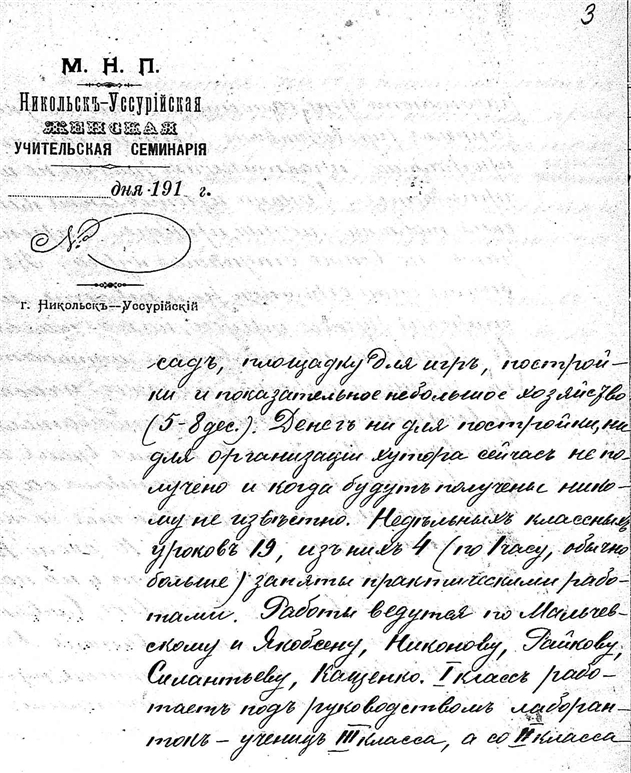 3
М. Н. П.
Никольскъ-Уссурійская
ЖЕНСКАЯ
УЧИТЕЛЬСКАЯ СЕМИНАРІЯ
дня 191 г.
№
г. Никольскъ-Уссурійскій
садъ, площадку для игръ, построй-
ки и показательное небольшое хозяйство
(5-8 дес.). Денегъ ни для постройки, ни
для организаціи хутора сейчасъ не по-
лучено и когда будутъ получены нико-
му не извѣстно. Недѣльныхъ классныхъ
уроковъ 19, изъ нихъ 4 (по 1 часу, обычно
больше) заняты практическими рабо-
тами. Работы ведутся по Мальчев-
скому и Якобсену, Никонову, Райкову,
Силантьеву, Кащенко. I классъ рабо-
таетъ подъ руководствомъ лаборан-
токъ - ученицъ III класса, а со II класса